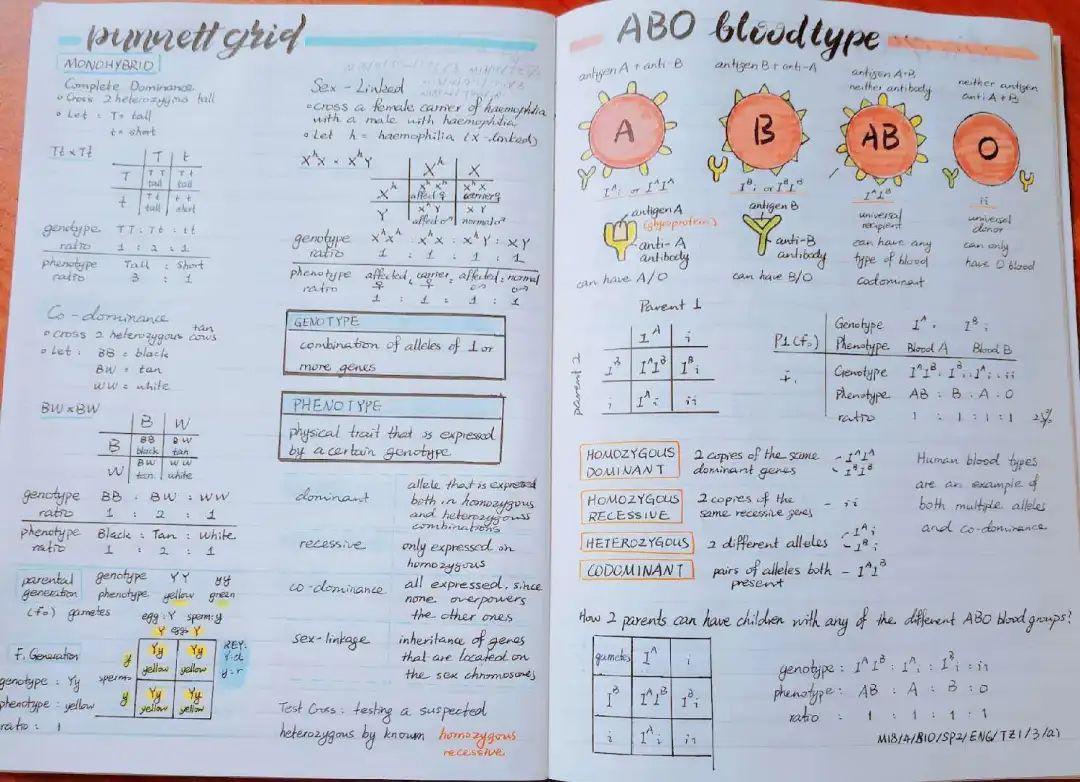 punnett grid
MONOHYBRID
Complete Dominance
Cross 2 heterozygous tall
Let : T = tall
t = short
Tt x Tt
T t
T TT tall Tt tall
t Tt tall tt short
genotype ratio TT : Tt : tt
1 : 2 : 1
phenotype ratio Tall : Short
3 : 1
Co-dominance
cross 2 heterozygous tan cows
Let : BB = black
BW = tan
WW = white
BW x BW
B W
B BB black BW tan
W BW tan WW white
genotype ratio BB : BW : WW
1 : 2 : 1
phenotype ratio Black : Tan : White
1 : 2 : 1
parental generation (f₀)
genotype YY yy
phenotype yellow green
gametes egg : Y sperm : y
Y egg Y
sperm y Yy yellow Yy yellow
y Yy yellow Yy yellow
KEY:
Y: d
y: r
F₁ Generation
genotype : Yy
phenotype : yellow
ratio : 1
Sex-Linked
cross a female carrier of haemophilia
with a male with haemophilia
Let h = haemophilia (x-linked)
XʰX x XʰY
Xʰ X
Xʰ XʰXʰ affected ♀ XʰX carrier ♀
Y XʰY affected ♂ XY normal ♂
genotype ratio XʰXʰ : XʰX : XʰY : XY
1 : 1 : 1 : 1
phenotype ratio affected ♀ : carrier ♀ : affected ♂ : normal ♂
1 : 1 : 1 : 1
GENOTYPE
combination of alleles of 1 or
more genes
PHENOTYPE
physical trait that is expressed
by a certain genotype
dominant allele that is expressed
both in homozygous
and heterozygous
combinations
recessive only expressed in
homozygous
co-dominance all expressed, since
none overpowers
the other ones
sex-linkage inheritance of genes
that are located on
the sex chromosomes
Test Cross : testing a suspected
heterozygous by known homozygous
recessive
ABO bloodtype
antigen A + anti-B
A
Iᴬi or IᴬIᴬ
antigen A
(glycoprotein)
anti-A
antibody
can have A/O
antigen B + anti-A
B
Iᴮi or IᴮIᴮ
antigen B
anti-B
antibody
can have B/O
antigen A+B
neither antibody
AB
IᴬIᴮ
universal
recipient
can have any
type of blood
codominant
neither antigen
anti A + B
O
ii
universal
donor
can only
have O blood
Parent 1
parent 2
Iᴬ i
Iᴮ IᴬIᴮ Iᴮi
i Iᴬi ii
P1 (f₀) Genotype Iᴬi Iᴮi
Phenotype Blood A Blood B
f₁ Genotype IᴬIᴮ : Iᴮi : Iᴬi : ii
Phenotype AB : B : A : O
ratio 1 : 1 : 1 : 1 25%
HOMOZYGOUS DOMINANT 2 copies of the same dominant genes - IᴬIᴬ - IᴮIᴮ
HOMOZYGOUS RECESSIVE 2 copies of the same recessive genes - ii
HETEROZYGOUS 2 different alleles - Iᴬi - Iᴮi
CODOMINANT pairs of alleles both present - IᴬIᴮ
Human blood types
are an example of
both multiple alleles
and co-dominance
How 2 parents can have children with any of the different ABO blood groups?
gametes Iᴬ i
Iᴮ IᴬIᴮ Iᴮi
i Iᴬi ii
genotype : IᴬIᴮ : Iᴬi : Iᴮi : ii
phenotype : AB : A : B : O
ratio : 1 : 1 : 1 : 1
M18/4/BIO/SP2/ENG/TZ1/3/a1